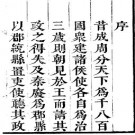 序
昔成周分天下為千八百
國衆建諸侯使各自為治
三歲則朝見於王而請其
政之得失及秦廢為郡縣
以郡統縣置吏使聽其政